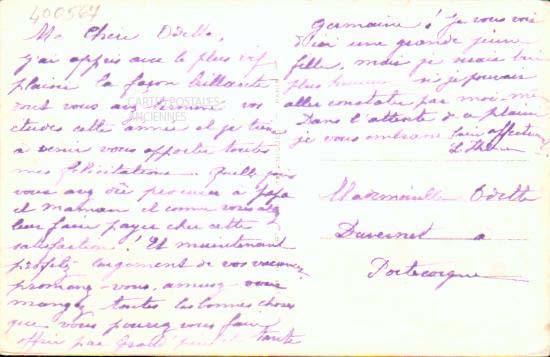 400567
Ma Chère Odette,
J'ai appris avec le plus vif
plaisir la façon brillante
dont vous avez terminé vos
CARTES POSTALES
ANCIENNES
études cette année et je tiens
à venir vous apporter toutes
mes félicitations. Quelle joie
vous avez dû procurer à papa
et maman et comme vous avez
leur faire payer cher cette
satisfaction! Et maintenant
profitez largement de vos vacances
promenez-vous, amusez-vous
mangez toutes les bonnes choses
que vous pourez vous faire
offrir par tante
Germaine! Je vous vois
d'ici une grande jeune
fille, mais je serais bien
plus heureux si je pouvais
aller constater par moi-même
Dans l'attente de ce plaisir
je vous embrasse bien affectueusement
Mademoiselle Odette
Duvernet a